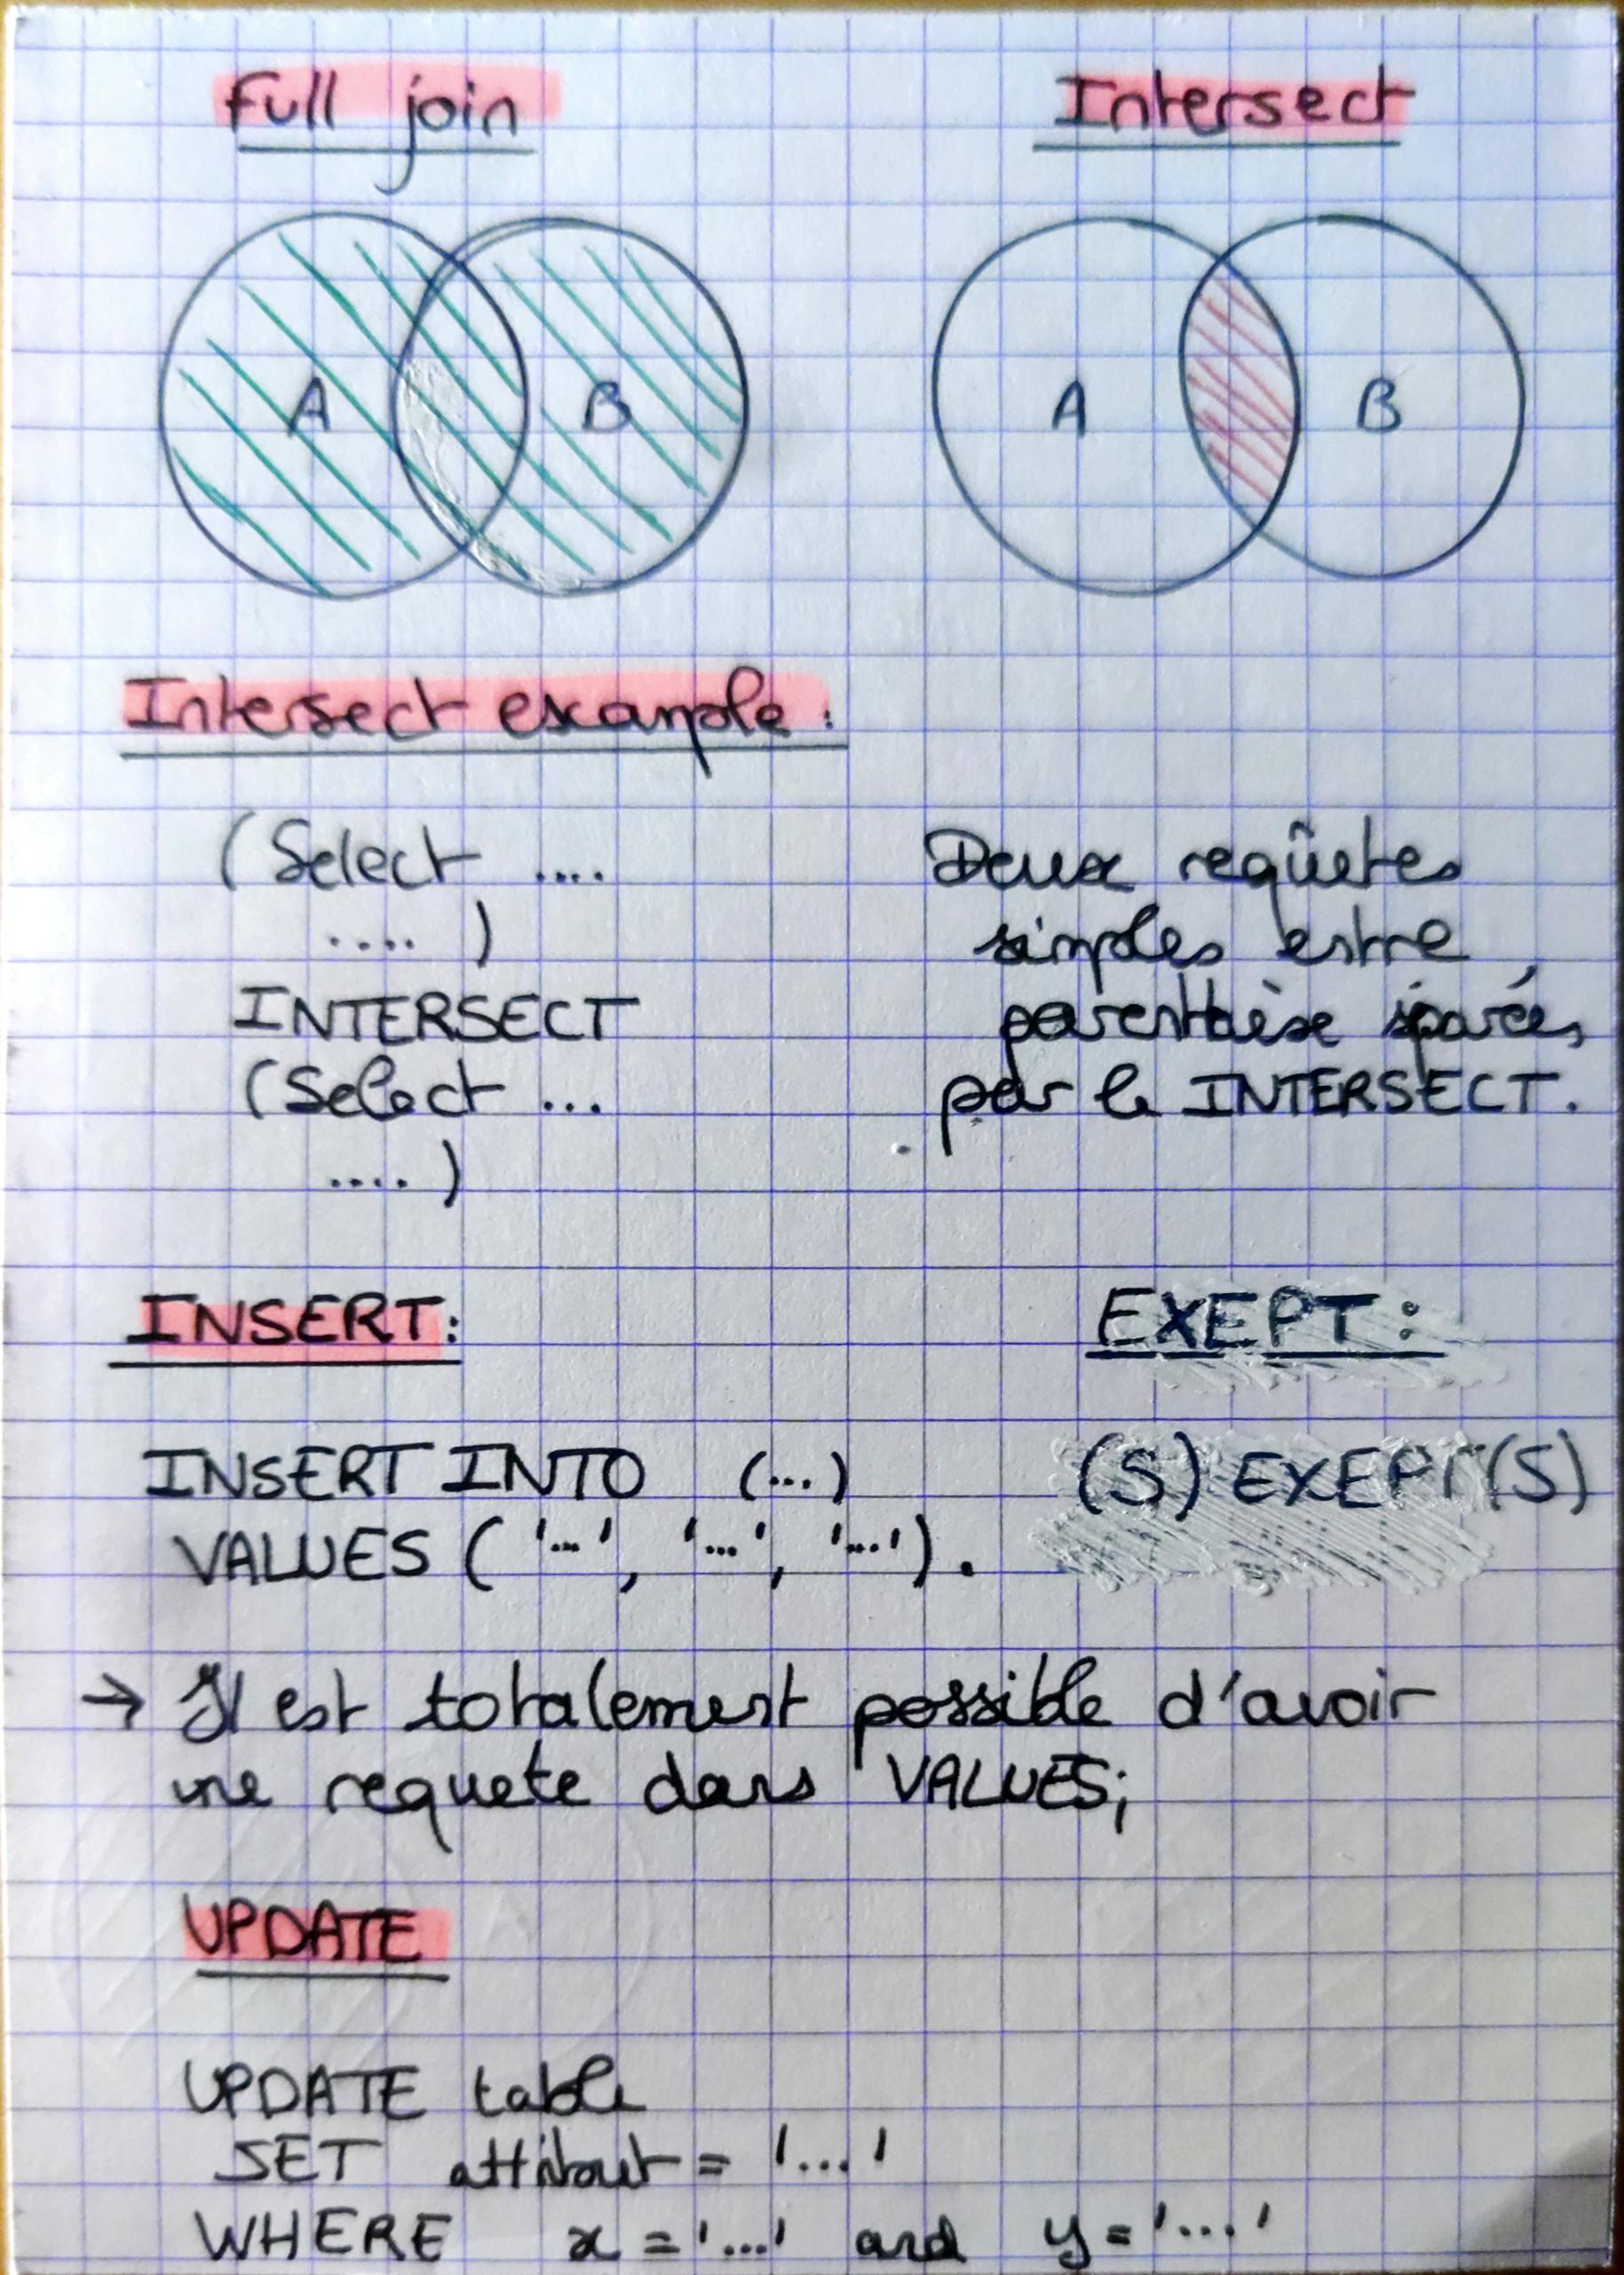 Full join
Intersect
A
B
A
B
Intersect example :
(Select ....
.... )
INTERSECT
(Select ...
.... )
Deux reqûetes
simples entre
parenthèse sparées
par le INTERSECT.
INSERT:
INSERT INTO (...)
VALUES ( '...', '...', '...').
EXEPT :
(S) EXEPT (S)
→ Il est totalement possible d'avoir
une requete dans VALUES;
UPDATE
UPDATE table
SET attribut = '...'
WHERE x = '...' and y = '....'